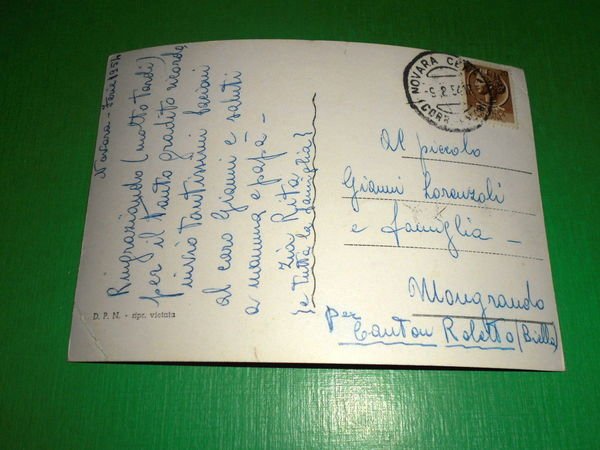 Novara - 1954
Ringraziando (molto tardi)
per il tanto gradito ricordo,
invio tantissimi bacioni
al caro Gianni e saluti
a mamma e papà -
zia Rita
(e tutta la famiglia)
D. P. N. - ripr. vietata
NOVARA
Al piccolo
Gianni Lorenzoli
e famiglia -
Mongrando
per
Canton Roletto (Biella)